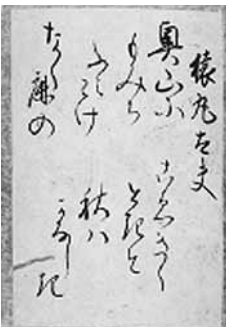 猿丸大夫
奥山に
もみち
ふみわけ
なく鹿の
こゑきく
ときそ
秋ハ
かなし起